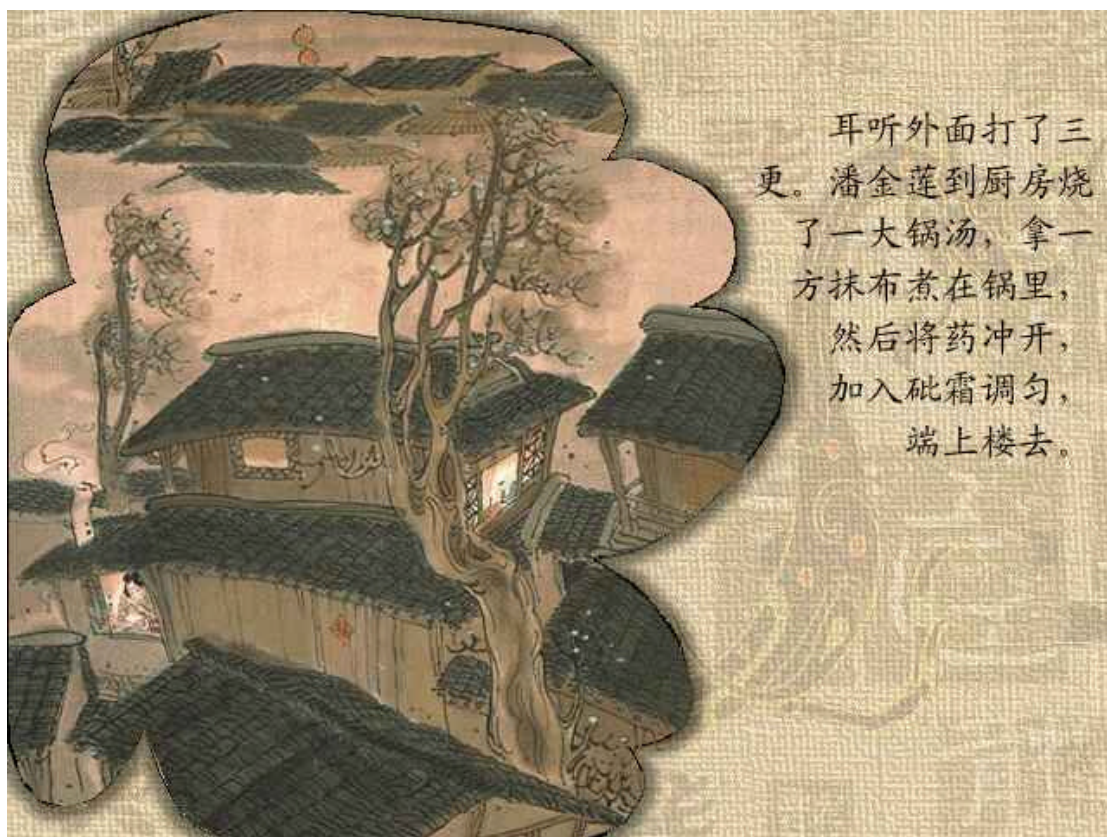 耳听外面打了三
更。潘金莲到厨房烧
了一大锅汤，拿一
方抹布煮在锅里，
然后将药冲开，
加入砒霜调匀，
端上楼去。